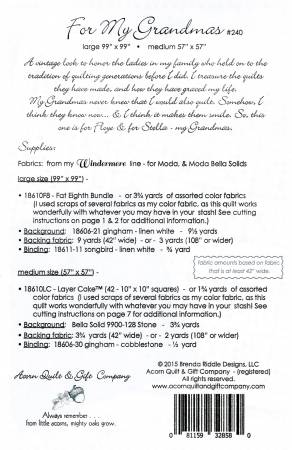 For My Grandmas #240
large 99" x 99" • medium 57" x 57"
A vintage look to honor the ladies in my family who held on to the
tradition of quilting generations before I did. I treasure the quilts
they have made, and how they have graced my life.
My Grandmas never knew that I would also quilt. Somehow, I
think they know now... & I think it makes them smile. So, this
one is for Floye & for Stella - my Grandmas.
Supplies:
Fabrics: from my Windermere line - for Moda, & Moda Bella Solids
large size (99" x 99") -
• 18610F8 - Fat Eighth Bundle - or 3¾ yards of assorted color fabrics
(I used scraps of several fabrics as my color fabric, as this quilt works
wonderfully with whatever you may have in your stash! See cutting
instructions on page 1 & 2 for additional information.)
• Background: 18606-21 gingham - linen white - 9½ yards
• Backing fabric: 9 yards (42" wide) - or - 3 yards (108" or wider)
• Binding: 18611-11 songbird - linen white - ¾ yard
Fabric amounts based on fabric
that is at least 42" wide.
medium size (57" x 57") -
• 18610LC - Layer Cake™ (42 - 10" x 10" squares) - or 1¾ yards of assorted
color fabrics (I used scraps of several fabrics as my color fabric, as this
quilt works wonderfully with whatever you may have in your stash! See
cutting instructions on page 7 for additional information.)
• Background: Bella Solid 9900-128 Stone - 3¾ yards
• Backing fabric: 3¾ yards (42" wide) - or - 2 yards (108" or wider)
• Binding: 18606-30 gingham - cobblestone - ½ yard
Acorn Quilt & Gift Company
Always remember . . .
from little acorns, mighty oaks grow.
© 2015 Brenda Riddle Designs, LLC
Acorn Quilt & Gift Company - (registered)
All rights reserved.
www.acornquiltandgiftcompany.com
0 81159 32858 0